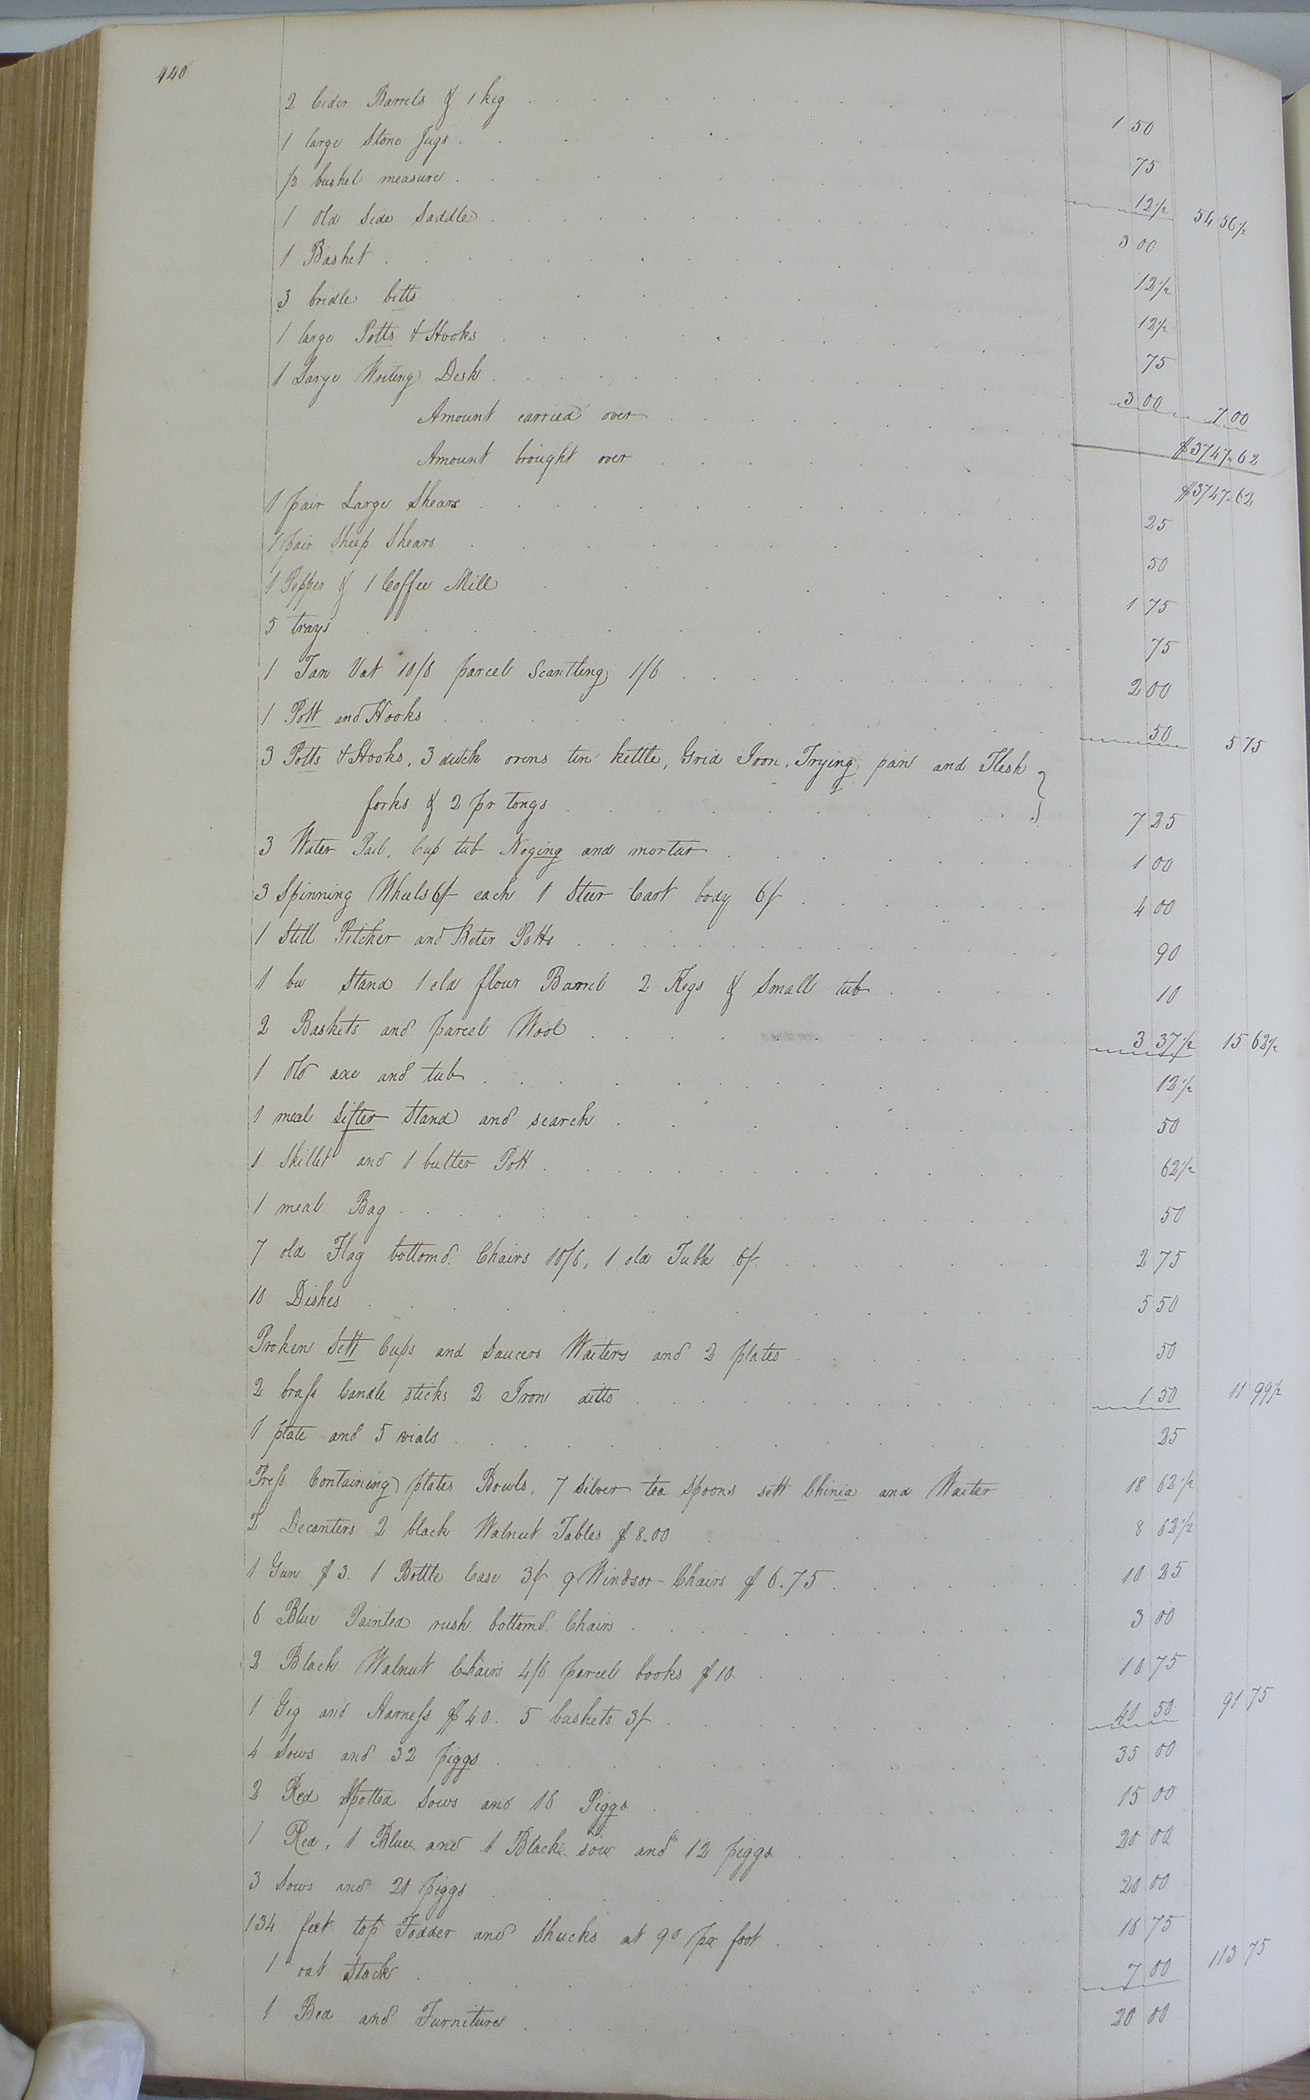 440
2 Cider Barrels & 1 keg 1 50
1 large Stone Jugs 75
1/2 bushel measure 12 1/2 54 56 1/2
1 old Side Saddle 3 00
1 Basket 12 1/2
3 bridle bitts 12 1/2
1 large Potts & Hooks 75
1 Large Writing Desk 3 00 7 00
Amount carried over $3747.62
Amount brought over $3747.62
1 pair Large Shears 25
1 pair Sheep Shears 50
1 Pepper & 1 Coffee Mill 1 75
5 trays 75
1 Tan Vat 10/6 parcel Scantling 1/6 2 00
1 Pott and Hooks 50 5 75
3 Potts & Hooks, 3 dutch ovens tin kettle, Grid Iron, Frying pan and Flesh
forks & 2 pr tongs 7 25
3 Water Pail, Cup tub Noging and mortar 1 00
3 Spinning Wheels 6/ each 1 Steer Cart body 6/ 4 00
1 Still Pitcher and Potts 90
1 bu Stand 1 old flour Barrel 2 Kegs & Small tub 10
2 Baskets and parcel Wool 3 37 1/2 15 62 1/2
1 Old axe and tub 12 1/2
1 meal Sifter Stand and search 50
1 Skillet and 1 butter Pott 62 1/2
1 meal Bag 50
7 old Flag bottomd. Chairs 10/6, 1 old Table 6/ 2 75
10 Dishes 5 50
Broken Sett Cups and Saucers Waiters and 2 plates 50
2 brass Candle sticks 2 Iron ditto 1 50 11 99 1/2
1 plate and 5 vials 25
Press Containing plates Bowls, 7 Silver tea Spoons sett Chinia and Waiter 18 62 1/2
2 Decanters 2 black Walnut Tables $8.00 8 62 1/2
1 Gun $3. 1 Bottle Case 3/ 9 Windsor-Chairs $6.75 10 25
6 Blue Painted rush bottomd. Chairs 3 00
2 Black Walnut Chairs 4/6 parcel books $10 10 75
1 Gig and Harness $40. 5 baskets 3/ 40 50 91 75
4 Sows and 32 piggs 35 00
2 Red Spotted Sows and 16 Piggs 15 00
1 Red, 1 Blue and 1 Black sow and 12 piggs 20 00
3 Sows and 20 piggs 20 00
134 feet top Fodder and Shucks at 9d pr foot 16 75
1 oat Stack 7 00 113 75
1 Bed and Furniture 20 00